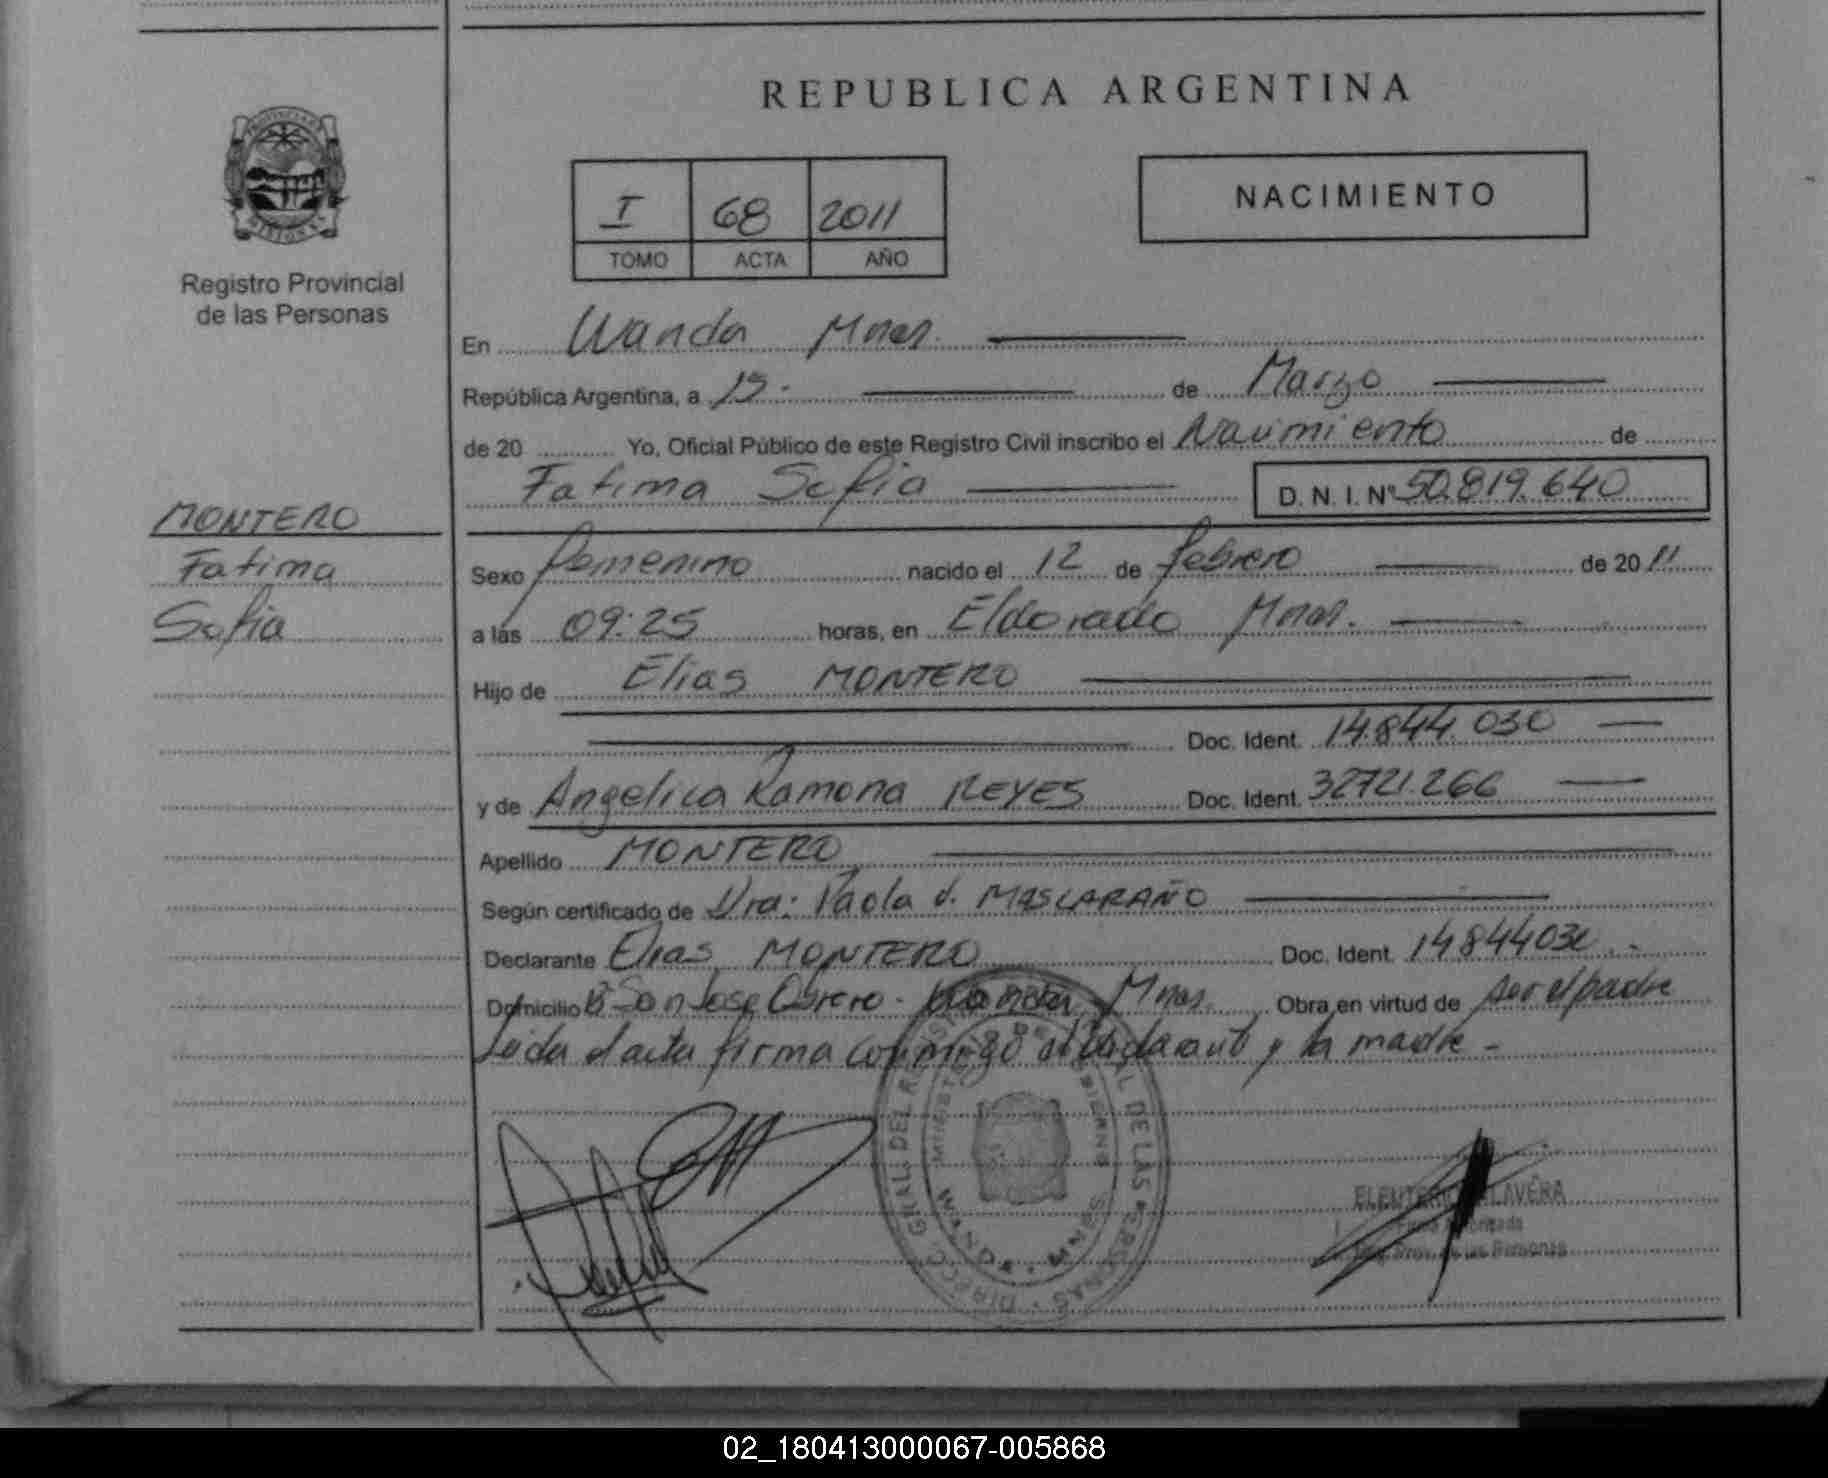 REPUBLICA ARGENTINA
PROVINCIA DE MISIONES
Registro Provincial
de las Personas
I 68 2011
TOMO ACTA AÑO
NACIMIENTO
En Wanda Mnes.
República Argentina, a 15. de Marzo
de 20 Yo, Oficial Público de este Registro Civil inscribo el Nacimiento de
Fatima Sofia D. N. I. Nº 50.819.640
MONTERO
Fatima
Sofia
Sexo femenino nacido el 12 de febrero de 2011
a las 09:25 horas, en Eldorado Mnes.
Hijo de Elias MONTERO
Doc. Ident. 14.844.030
y de Angelica Ramona REYES Doc. Ident. 32721.266
Apellido MONTERO
Según certificado de Dra: Paola V. MASCARAÑO
Declarante Elias MONTERO Doc. Ident. 14844030
Domicilio Bº San Jose Obrero - Wanda, Mnes. Obra en virtud de ser el padre
Leida el acta firma conmigo el declarante y la madre -
DIRECC. GRAL DEL REGISTRO PROVINCIAL DE LAS PERSONAS
MINISTERIO DE GOBIERNO
WANDA MNES
ELEUTERIO TALAVERA
Firma Autorizada
Reg. Prov. de las Personas
02_180413000067-005868